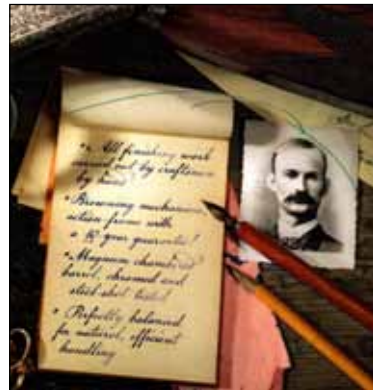 • All finishing work
carried out by craftsmen
by hand!
• Browning mechanism,
action frame with
a 10 year guarantee!
• Magnum chambered
barrel, chromed and
steel-shot tested
• Perfectly balanced
for natural, efficient
handling